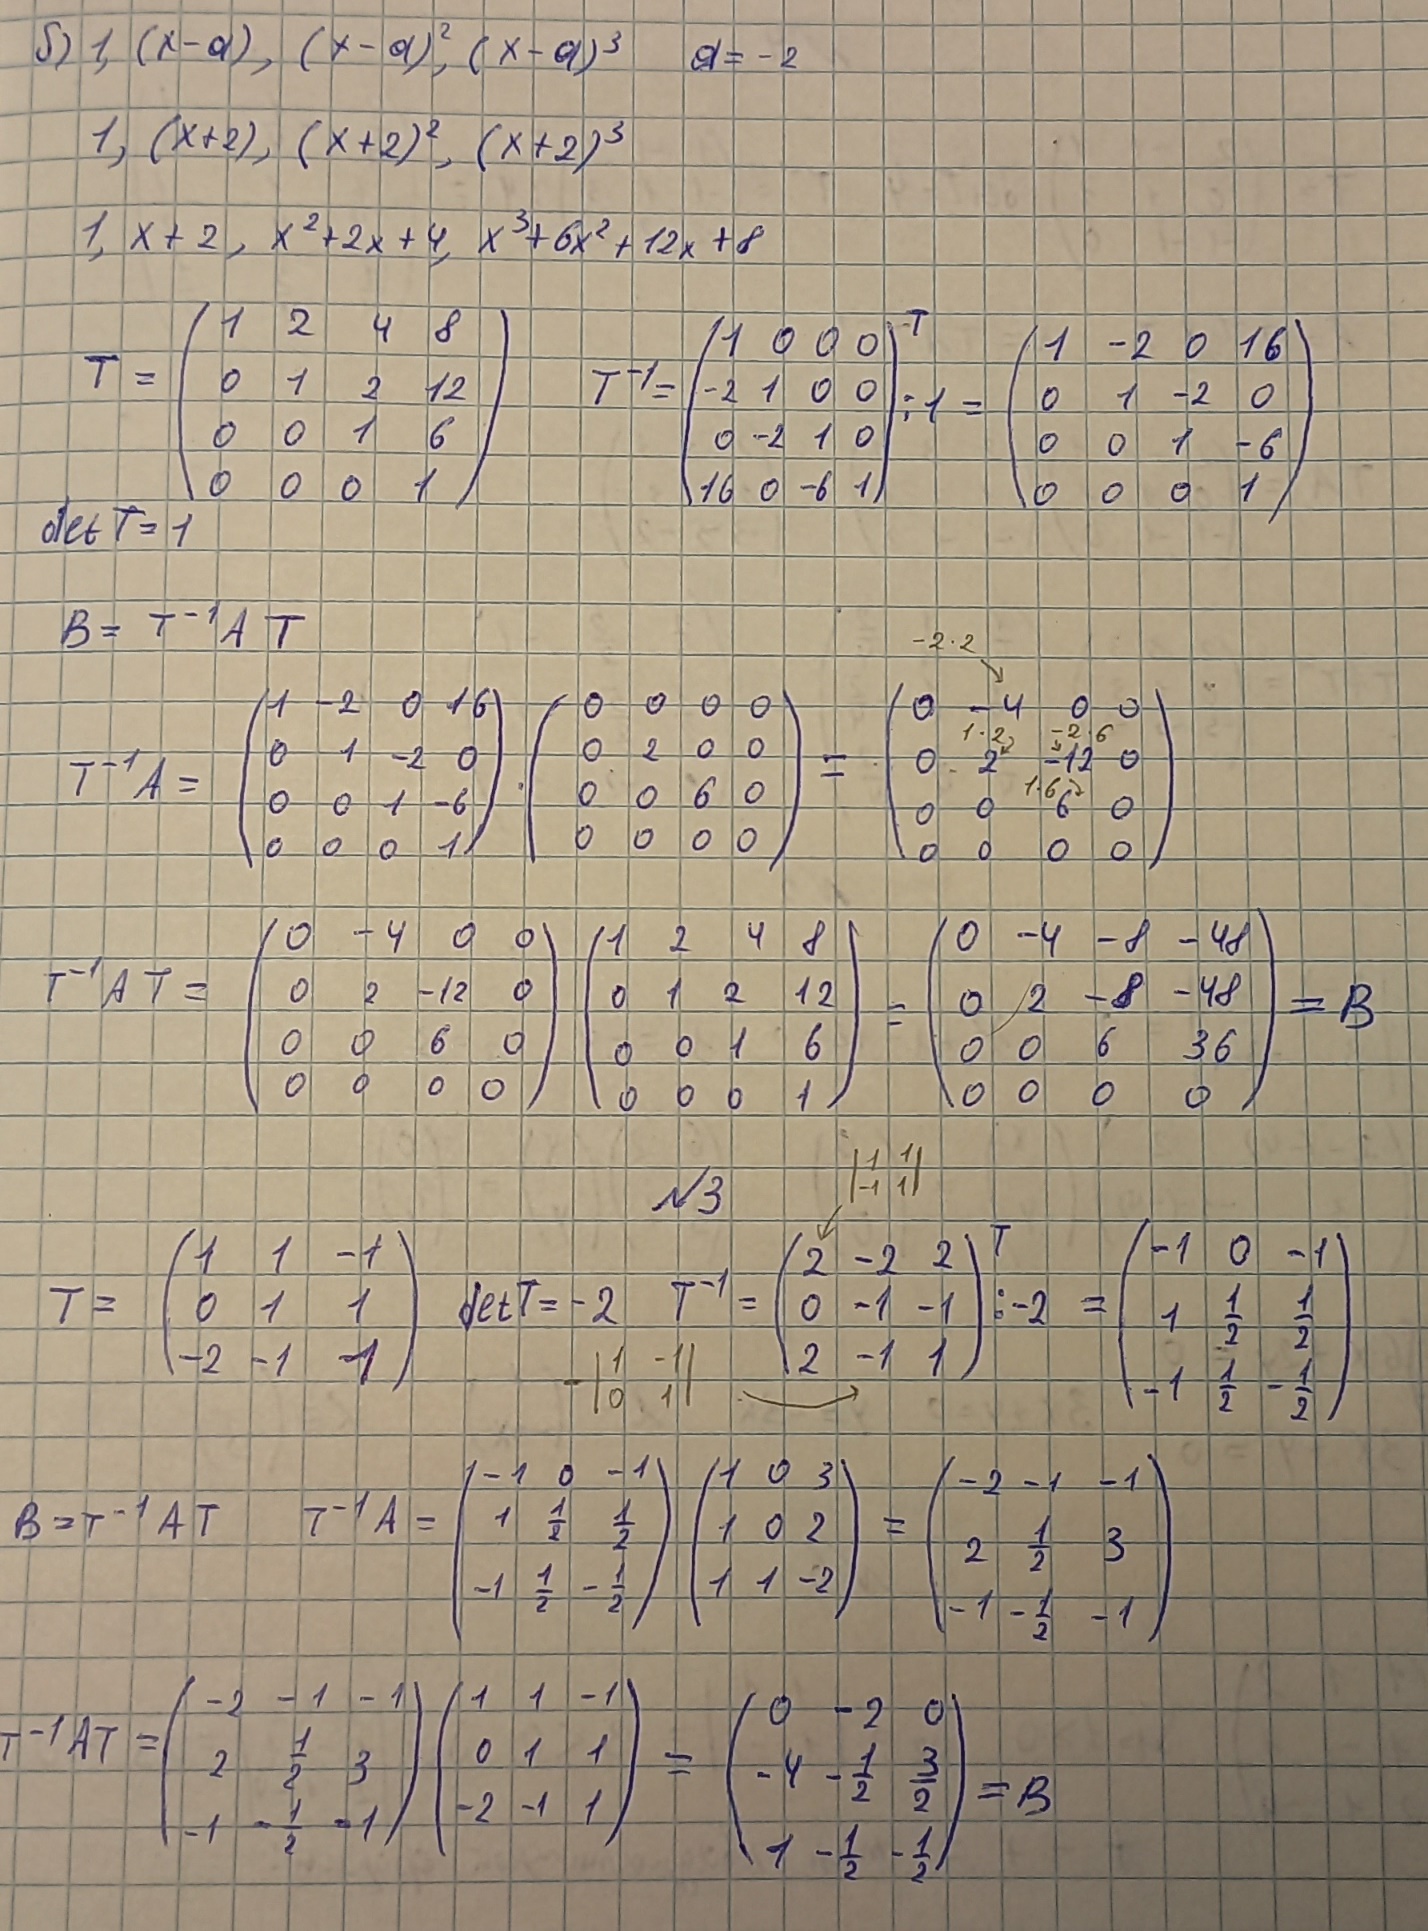 б) 1, (x-a), (x-a)², (x-a)³ a = -2
1, (x+2), (x+2)², (x+2)³
1, x+2, x²+2x+4, x³+6x²+12x+8
T = (1 2 4 8
0 1 2 12
0 0 1 6
0 0 0 1)
T⁻¹ = (1 0 0 0
-2 1 0 0
0 -2 1 0
16 0 -6 1)ᵀ : 1 = (1 -2 0 16
0 1 -2 0
0 0 1 -6
0 0 0 1)
det T = 1
B = T⁻¹ A T
-2·2
T⁻¹A = (1 -2 0 16
0 1 -2 0
0 0 1 -6
0 0 0 1) · (0 0 0 0
0 2 0 0
0 0 6 0
0 0 0 0) = (0 -4 0 0
1·2 -2·6
0 2 -12 0
1·6
0 0 6 0
0 0 0 0)
T⁻¹AT = (0 -4 0 0
0 2 -12 0
0 0 6 0
0 0 0 0) (1 2 4 8
0 1 2 12
0 0 1 6
0 0 0 1) = (0 -4 -8 -48
0 2 -8 -48
0 0 6 36
0 0 0 0) = B
N3
|1 1
-1 1|
T = (1 1 -1
0 1 1
-2 -1 -1)
det T = -2
T⁻¹ = (2 -2 2
0 -1 -1
2 -1 1)ᵀ : -2 = (-1 0 -1
1 1/2 1/2
-1 1/2 -1/2)
-|1 -1
0 1|
B = T⁻¹AT T⁻¹A = (-1 0 -1
1 1/2 1/2
-1 1/2 -1/2) (1 0 3
1 0 2
1 1 -2) = (-2 -1 -1
2 1/2 3
-1 -1/2 -1)
T⁻¹AT = (-2 -1 -1
2 1/2 3
-1 -1/2 -1) (1 1 -1
0 1 1
-2 -1 1) = (0 -2 0
-4 -1/2 3/2
1 -1/2 -1/2) = B